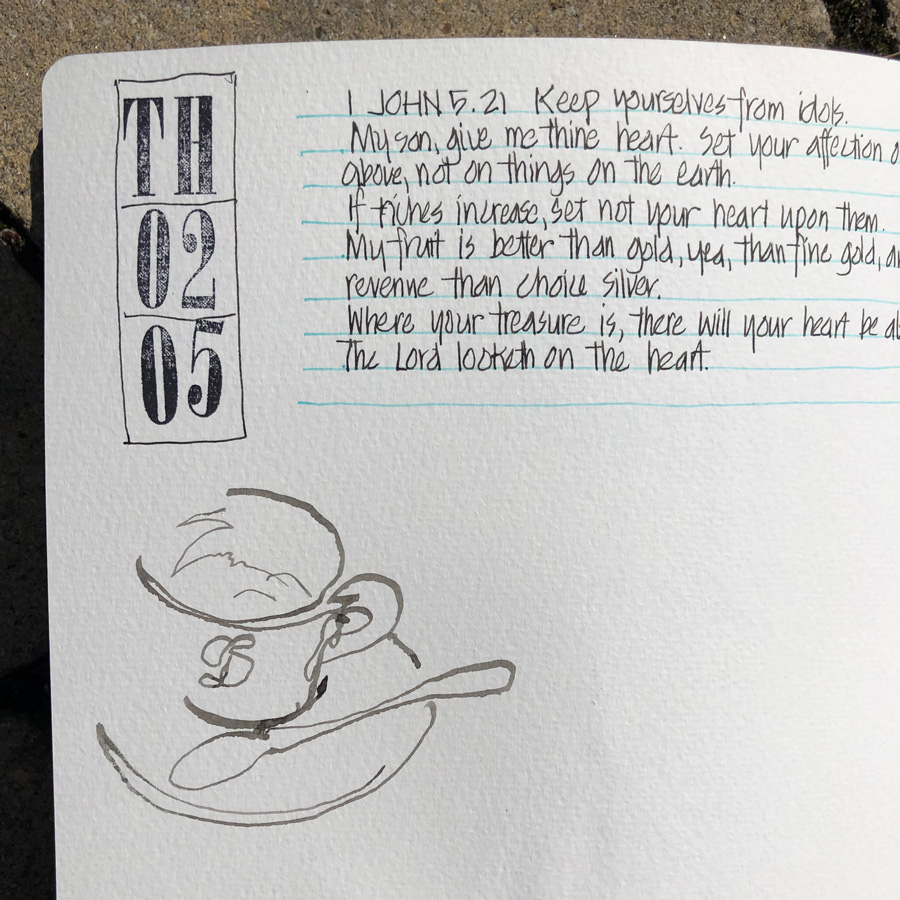 TH
02
05
1 JOHN 5.21 Keep yourselves from idols.
My son, give me thine heart. Set your affection o
above, not on things on the earth.
If riches increase, set not your heart upon them.
My fruit is better than gold, yea, than fine gold, an
revenue than choice silver.
Where your treasure is, there will your heart be al
The Lord looketh on the heart.
B